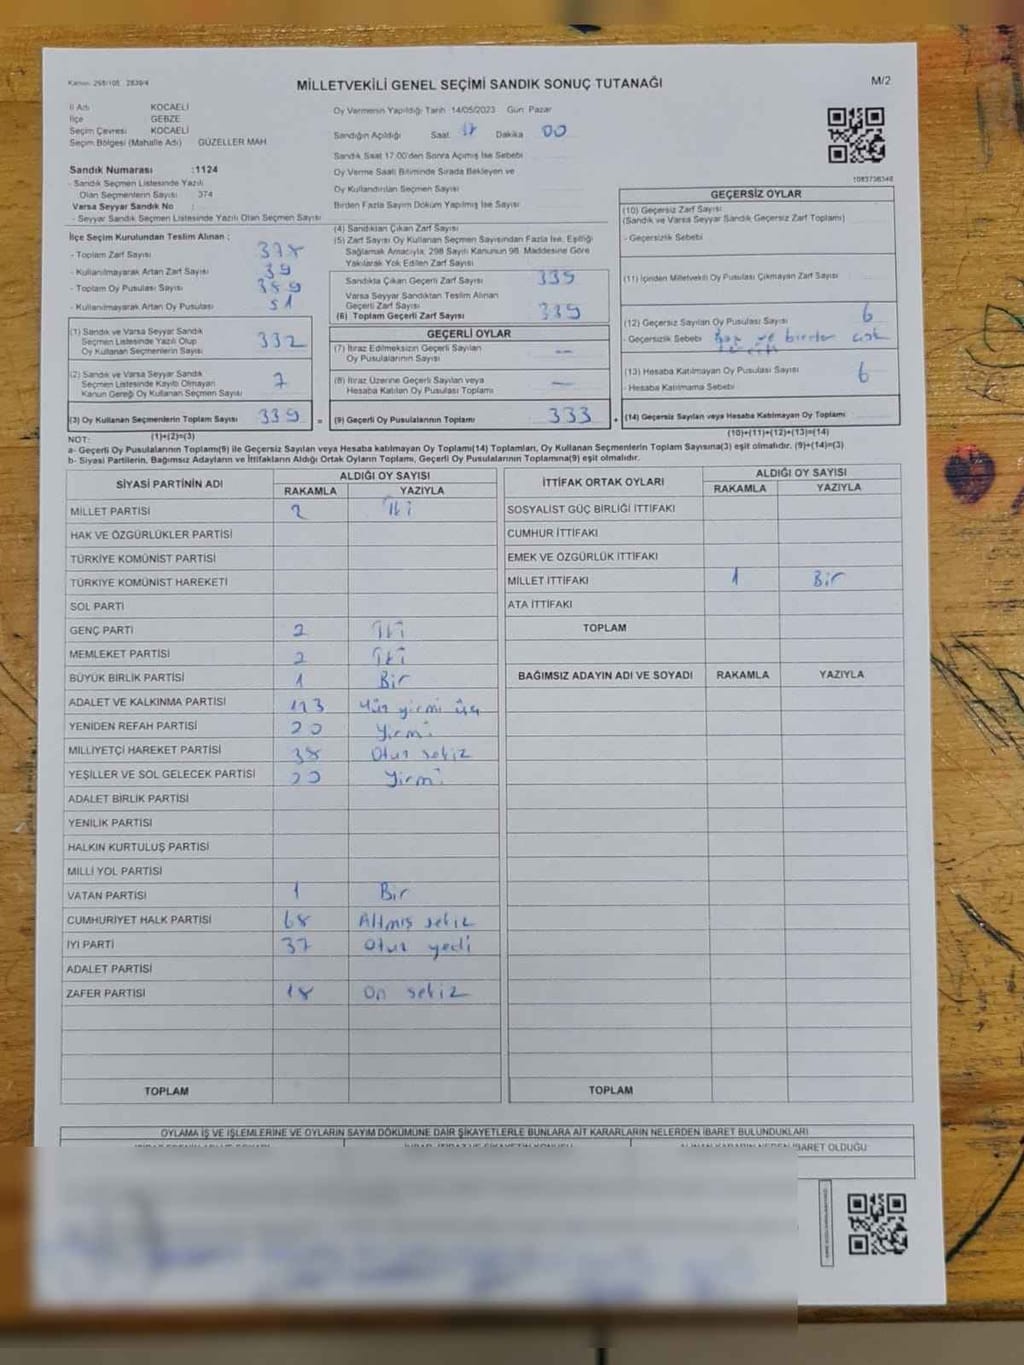 Kanun: 298/105 2839/4
MİLLETVEKİLİ GENEL SEÇİMİ SANDIK SONUÇ TUTANAĞI
M/2
İl Adı KOCAELİ
İlçe GEBZE
Seçim Çevresi KOCAELİ
Seçim Bölgesi (Mahalle Adı) GÜZELLER MAH
Sandık Numarası :1124
- Sandık Seçmen Listesinde Yazılı
Olan Seçmenlerin Sayısı 374
Varsa Seyyar Sandık No :
- Seyyar Sandık Seçmen Listesinde Yazılı Olan Seçmen Sayısı
Oy Vermenin Yapıldığı Tarih 14/05/2023 Gün Pazar
Sandığın Açıldığı Saat 17 Dakika 00
Sandık Saat 17:00'den Sonra Açılmış İse Sebebi
Oy Verme Saati Bitiminde Sırada Bekleyen ve
Oy Kullandırılan Seçmen Sayısı
Birden Fazla Sayım Döküm Yapılmış İse Sayısı
İlçe Seçim Kurulundan Teslim Alınan ;
- Toplam Zarf Sayısı 378
- Kullanılmayarak Artan Zarf Sayısı 39
- Toplam Oy Pusulası Sayısı
- Kullanılmayarak Artan Oy Pusulası 51
(1) Sandık ve Varsa Seyyar Sandık
Seçmen Listesinde Yazılı Olup
Oy Kullanan Seçmenlerin Sayısı 332
(2) Sandık ve Varsa Seyyar Sandık
Seçmen Listesinde Kayıtlı Olmayan
Kanun Gereği Oy Kullanan Seçmen Sayısı 7
(3) Oy Kullanan Seçmenlerin Toplam Sayısı 339 =
(1)+(2)=(3)
(4) Sandıktan Çıkan Zarf Sayısı
(5) Zarf Sayısı Oy Kullanan Seçmen Sayısından Fazla İse, Eşitliği
Sağlamak Amacıyla, 298 Sayılı Kanunun 98. Maddesine Göre
Yakılarak Yok Edilen Zarf Sayısı
Sandıkta Çıkan Geçerli Zarf Sayısı 339
Varsa Seyyar Sandıktan Teslim Alınan
Geçerli Zarf Sayısı
(6) Toplam Geçerli Zarf Sayısı 339
GEÇERLİ OYLAR
(7) İtiraz Edilmeksizin Geçerli Sayılan
Oy Pusulalarının Sayısı —
(8) İtiraz Üzerine Geçerli Sayılan veya
Hesaba Katılan Oy Pusulası Toplamı —
(9) Geçerli Oy Pusulalarının Toplamı 333 +
1083738348
GEÇERSİZ OYLAR
(10) Geçersiz Zarf Sayısı
(Sandık ve Varsa Seyyar Sandık Geçersiz Zarf Toplamı)
- Geçersizlik Sebebi
(11) İçinden Milletvekili Oy Pusulası Çıkmayan Zarf Sayısı
(12) Geçersiz Sayılan Oy Pusulası Sayısı 6
- Geçersizlik Sebebi Boş ve birden çok
(13) Hesaba Katılmayan Oy Pusulası Sayısı 6
- Hesaba Katılmama Sebebi
(14) Geçersiz Sayılan veya Hesaba Katılmayan Oy Toplamı
(10)+(11)+(12)+(13)=(14)
NOT:
a- Geçerli Oy Pusulalarının Toplamı(9) ile Geçersiz Sayılan veya Hesaba katılmayan Oy Toplamı(14) Toplamları, Oy Kullanan Seçmenlerin Toplam Sayısına(3) eşit olmalıdır. (9)+(14)=(3)
b- Siyasi Partilerin, Bağımsız Adayların ve İttifakların Aldığı Ortak Oyların Toplamı, Geçerli Oy Pusulalarının Toplamına(9) eşit olmalıdır.
SİYASİ PARTİNİN ADI ALDIĞI OY SAYISI
RAKAMLA YAZIYLA
MİLLET PARTİSİ 2 İki
HAK VE ÖZGÜRLÜKLER PARTİSİ
TÜRKİYE KOMÜNİST PARTİSİ
TÜRKİYE KOMÜNİST HAREKETİ
SOL PARTİ
GENÇ PARTİ 2 İki
MEMLEKET PARTİSİ 2 İki
BÜYÜK BİRLİK PARTİSİ 1 Bir
ADALET VE KALKINMA PARTİSİ 123 Yüz yirmi üç
YENİDEN REFAH PARTİSİ 20 Yirmi
MİLLİYETÇİ HAREKET PARTİSİ 38 Otuz sekiz
YEŞİLLER VE SOL GELECEK PARTİSİ 20 Yirmi
ADALET BİRLİK PARTİSİ
YENİLİK PARTİSİ
HALKIN KURTULUŞ PARTİSİ
MİLLİ YOL PARTİSİ
VATAN PARTİSİ 1 Bir
CUMHURİYET HALK PARTİSİ 68 Altmış sekiz
İYİ PARTİ 37 Otuz yedi
ADALET PARTİSİ
ZAFER PARTİSİ 18 On sekiz
TOPLAM
İTTİFAK ORTAK OYLARI ALDIĞI OY SAYISI
RAKAMLA YAZIYLA
SOSYALİST GÜÇ BİRLİĞİ İTTİFAKI
CUMHUR İTTİFAKI
EMEK VE ÖZGÜRLÜK İTTİFAKI
MİLLET İTTİFAKI 1 Bir
ATA İTTİFAKI
TOPLAM
BAĞIMSIZ ADAYIN ADI VE SOYADI RAKAMLA YAZIYLA
TOPLAM
OYLAMA İŞ VE İŞLEMLERİNE VE OYLARIN SAYIM DÖKÜMÜNE DAİR ŞİKAYETLERLE BUNLARA AİT KARARLARIN NELERDEN İBARET BULUNDUKLARI
İBARET OLDUĞU